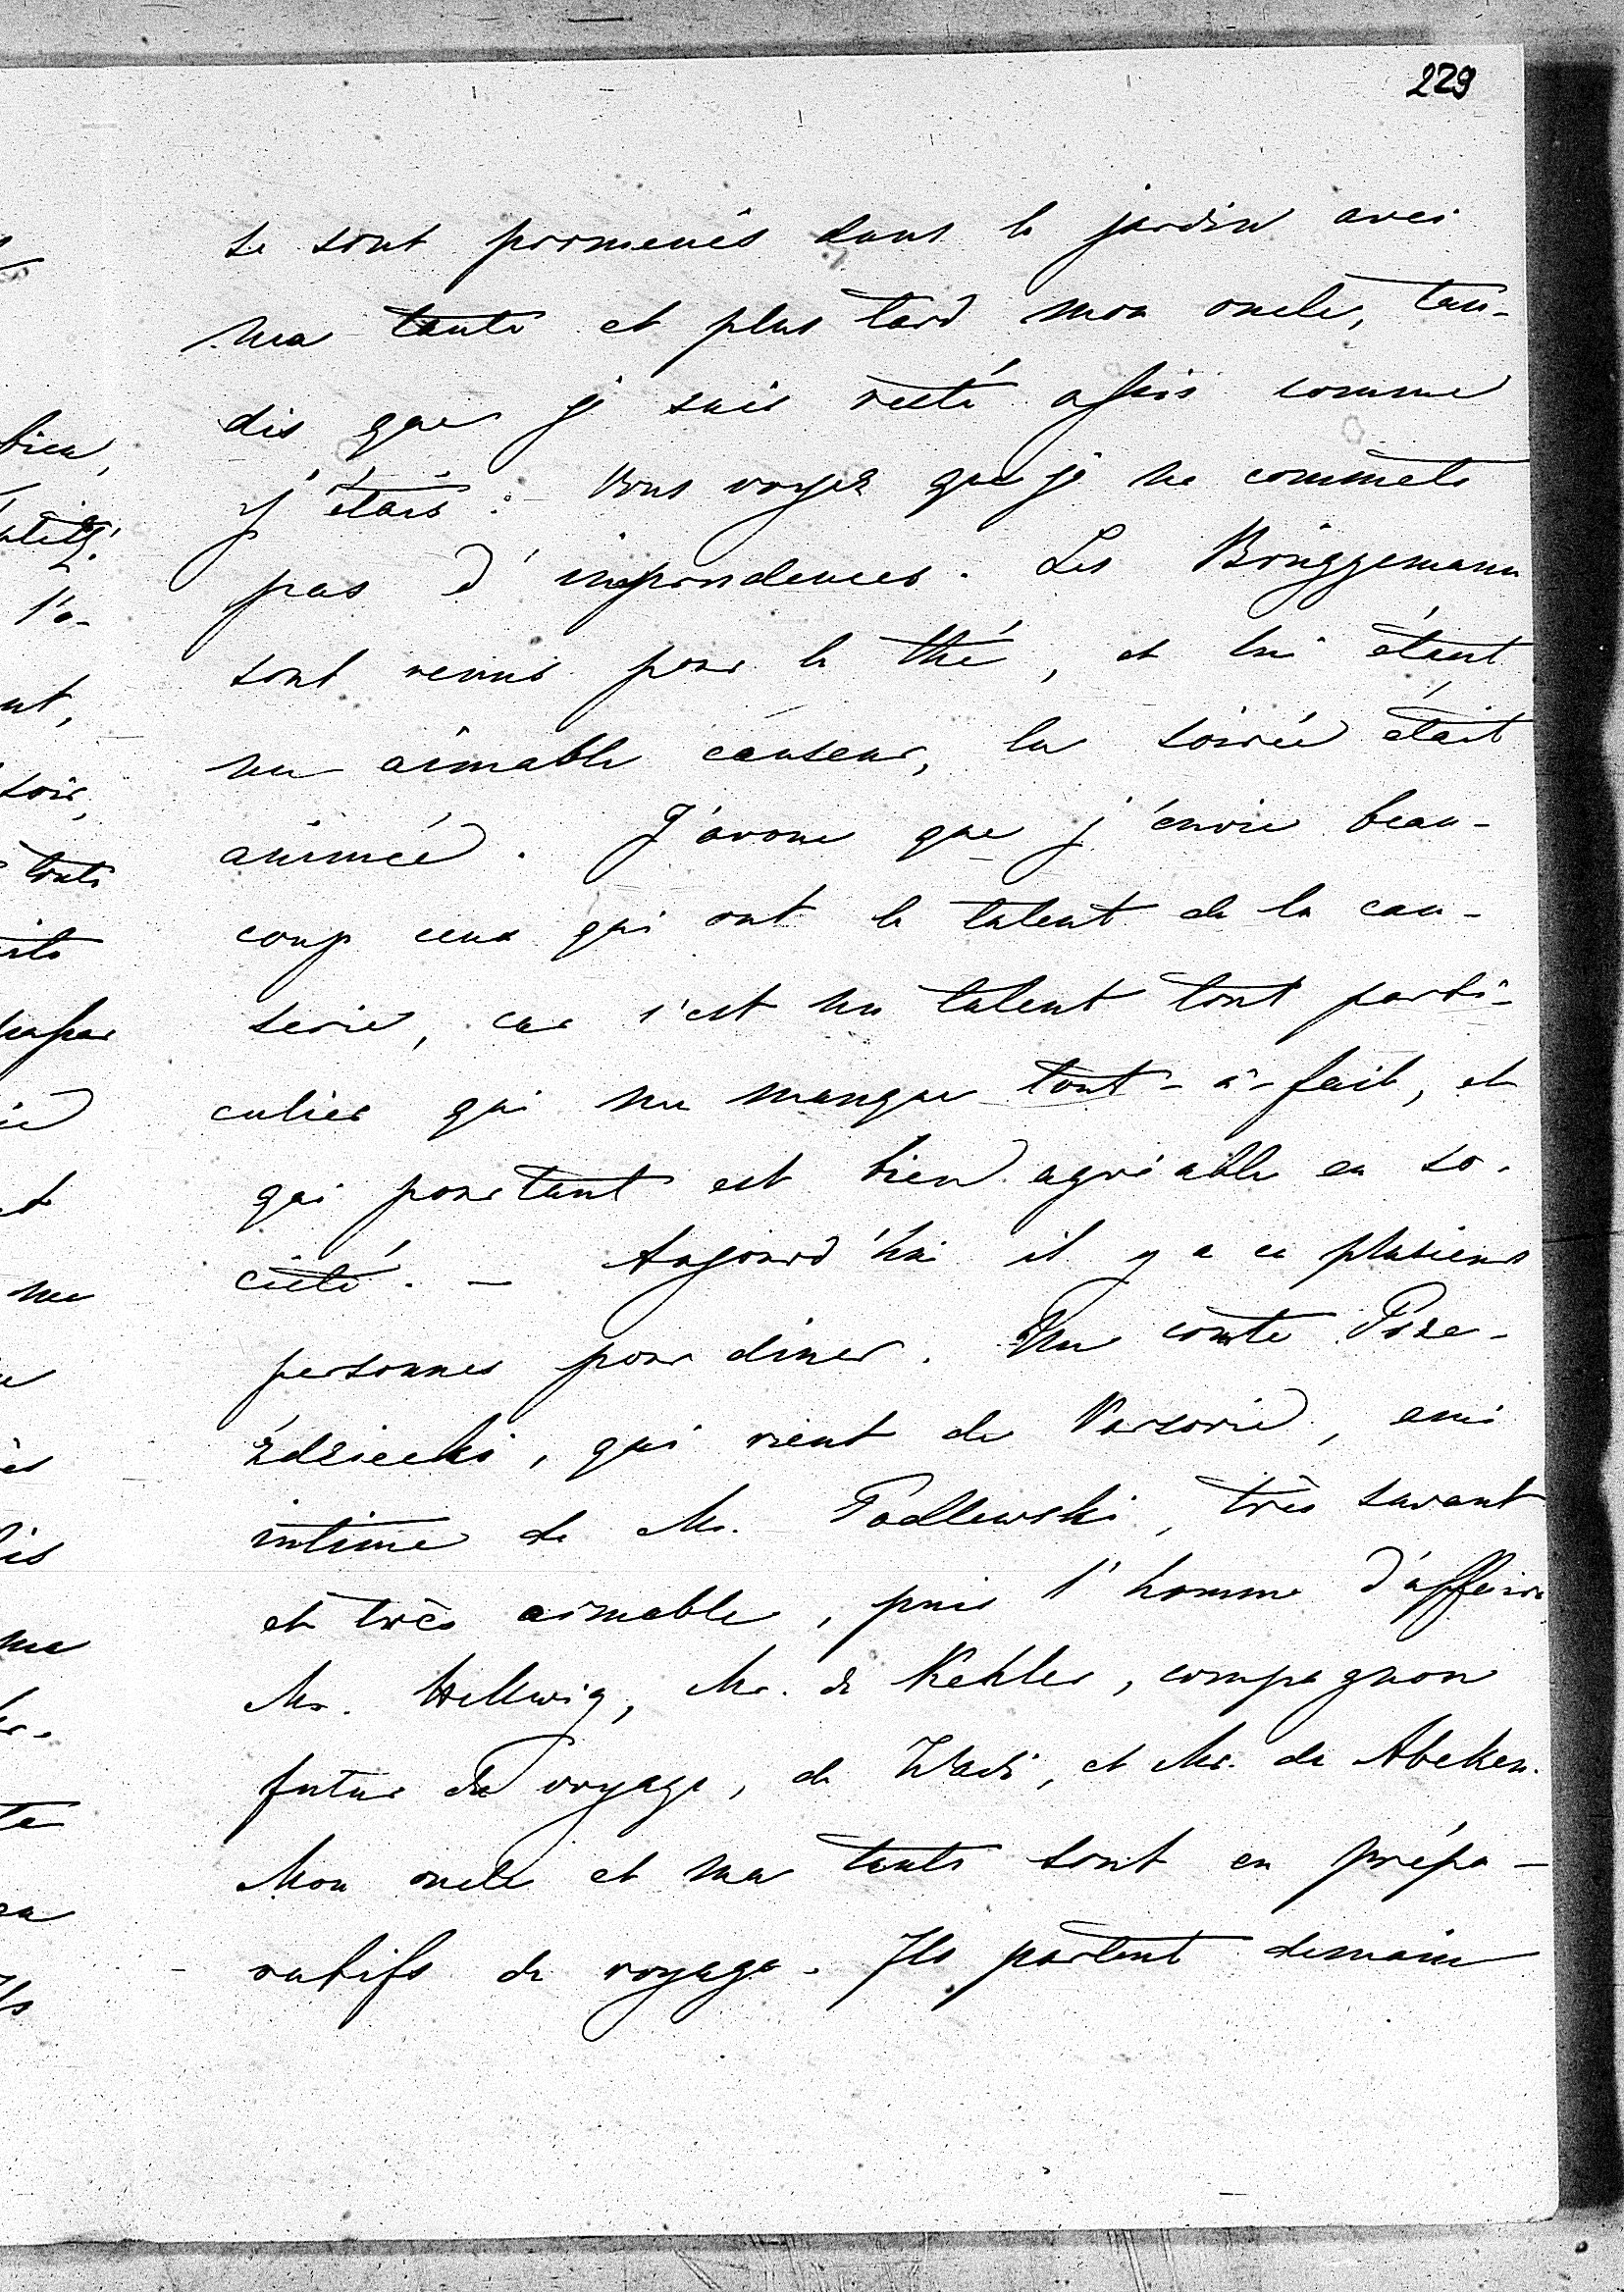 229
se sont promenés dans le jardin avec
ma tante et plus tard mon oncle, tan-
dis que je suis resté assis comme
j'étais. Vous voyez que je ne commets
pas d'imprudences. Les Brüggemann
sont venus pour le thé, et lui étant
un aimable causeur, la soirée était
animée. J'avoue que j'envie beau-
coup ceux qui ont le talent de la cau-
serie, car c'est un talent tout parti-
culier qui me manque tout-à-fait, et
qui pourtant est bien agréable en so-
ciété. — Aujourd'hui il y a eu plusieurs
personnes pour diner. Un comte Prze-
ździecki, qui vient de Varsovie, ami
intime de Mr. Podlewski, très savant
et très aimable, puis l'homme d'affaires
Mr. Hellwig, Mr. de Kehler, compagnon
futur de voyage, de Wadi, et Mr. de Abeken.
Mon oncle et ma tante sont en prépa-
ratifs de voyage. Ils partent demain